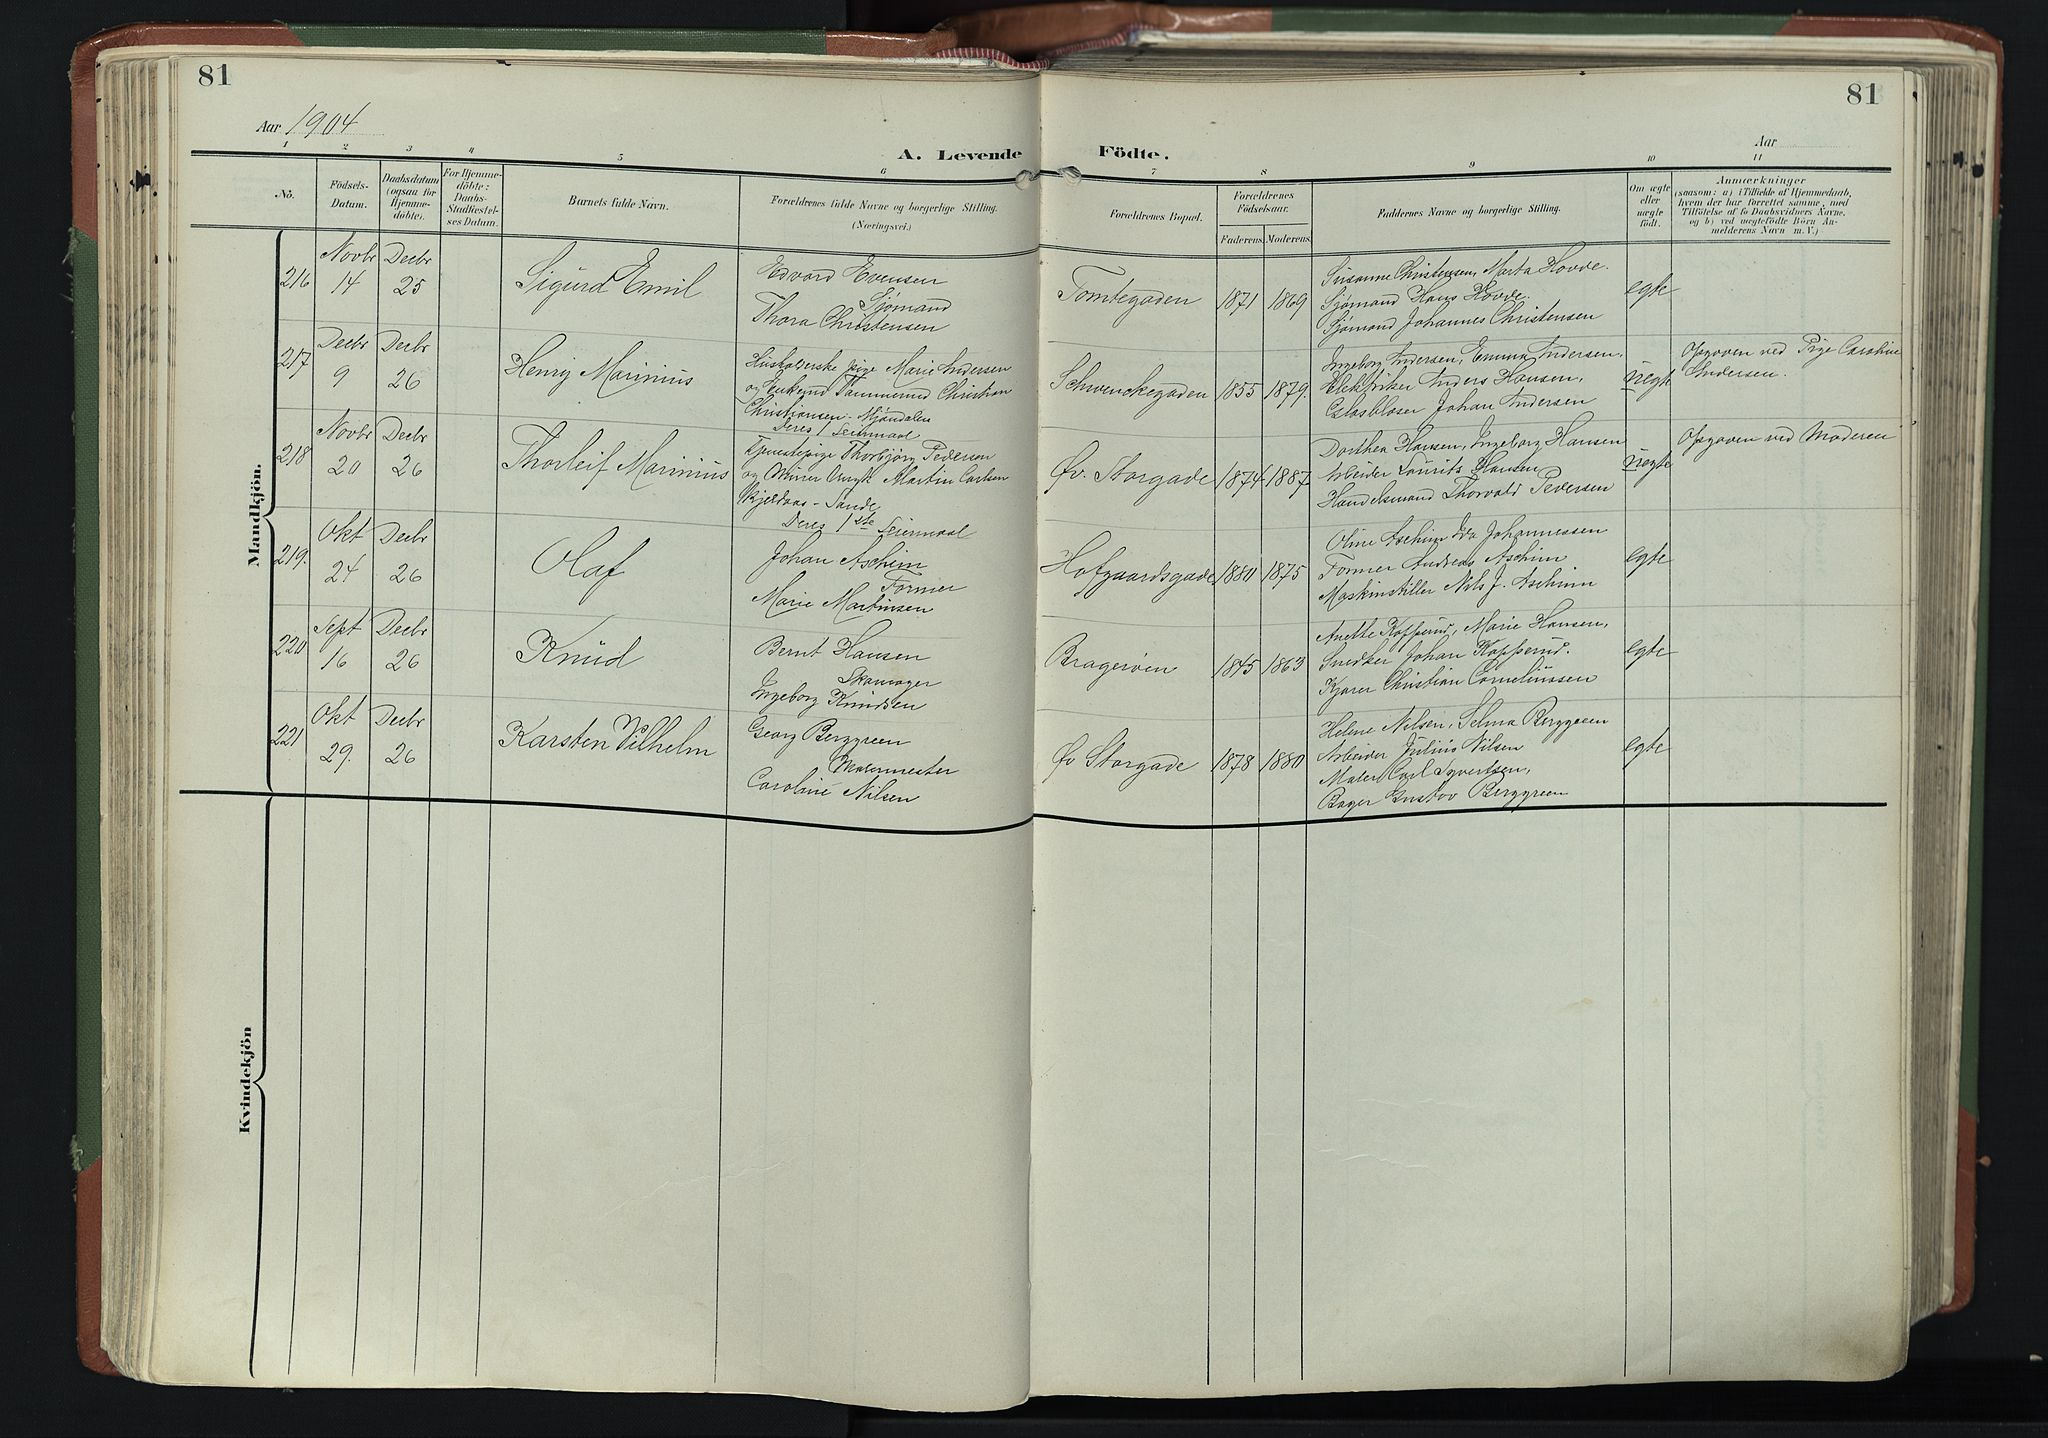 81
81
Aar 1904
Aar
A. Levende Födte.
1 2 3 4 5 6 7 8 9 10 11
No.
Födsels-
Datum.
Daabsdatum
(ogsaa for
Hjemme-
döbte).
For Hjemme-
döbte:
Daabs-
Stadfæstel-
ses Datum.
Barnets fulde Navn.
Forældrenes fulde Navne og borgerlige Stilling.
(Næringsvei.)
Forældrenes Bopæl.
Forældrenes
Födselsaar.
Faderens. Moderens.
Faddernes Navne og borgerlige Stilling.
Om ægte
eller
uægte
födt.
Anmærkninger
(saasom: a) i Tilfælde af Hjemmedaab,
hvem der har forrettet samme, med
Tilföielse af to Daabsvidners Navne,
og b) ved uægtefödte Börn An-
melderens Navn m. V.)
Mandkjön.
216
Novbr
14
Decbr
25
Sigurd Emil
Edvard Evensen
Sjømand
Thora Christensen
Tomtegaden
1871 1869
Susanne Christensen, Marta Hovde.
Sjømand Hans Hovde.
Sjømand Johannes Christensen
egte
217
Decbr
9
Decbr
26
Henry Marinius
Husholderske pige Marie Andersen
og Tømmermd Christian
Christiansen. Mjøndalen
Deres 1 Leiermaal
Schwenckegaden
1855 1879.
Ingeborg Andersen, Emma Andersen,
Elektriker Anders Hansen,
Glasblaser Johan Andersen
uegte
Opgaven ved Pige Caroline
Andersen.
218
Novbr
20
Decbr
26
Thorleif Marinius
Tjenestepige Thorbjørg Pedersen
og Martin Carlsen
Kjeldaas - Sande
Deres 1ste Leiermaal
Øv. Storgade
1874 1887
Dorthea Hansen, Ingeborg Hansen
Arbeider Laurits Hansen
Handelsmand Thorvald Pedersen
uegte
Opgaven ved Moderen
219.
Okt
24
Decbr
26
Olaf
Johan Aschim
Former
Marie Martinsen
Hofgaardsgade
1880 1875
Oline Aschim Ida Johannessen
Former Andreas Aschim
Maskinstiller Nils J. Aschim
egte
220
Sept
16
Decbr
26
Knud
Bernt Hansen
Skomager
Ingeborg Knudsen
Bragerøen
1845 1863
Anette Kopperud, Marie Hansen,
Snedker Johan Kopperud.
Kjører Christian Corneliussen
egte
221
Okt
29.
Decbr
26
Karsten Vilhelm
Georg Berggreen
Malermester
Caroline Nilsen
Øv Storgade
1878 1880
Helene Nilsen, Selma Berggreen
Arbeider Julius Nilsen
Maler Carl Syvertsen,
Bager Gustav Berggreen
egte
Kvindekjön